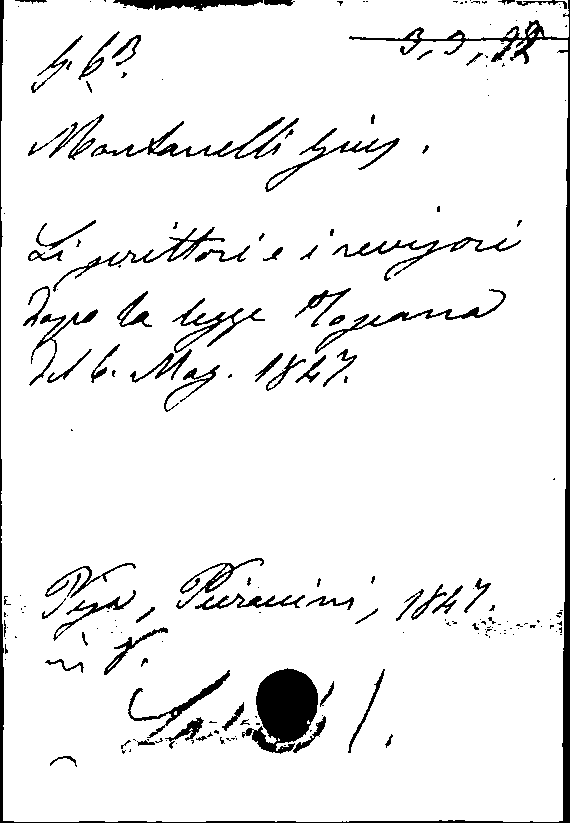 3, 9, 22
G. 6 B.
Montanelli Gius.
Li scrittori e i revisori
dopo la legge Toscana
del 6. Mag. 1847.
Pisa, Pieraccini, 1847.
in 8.